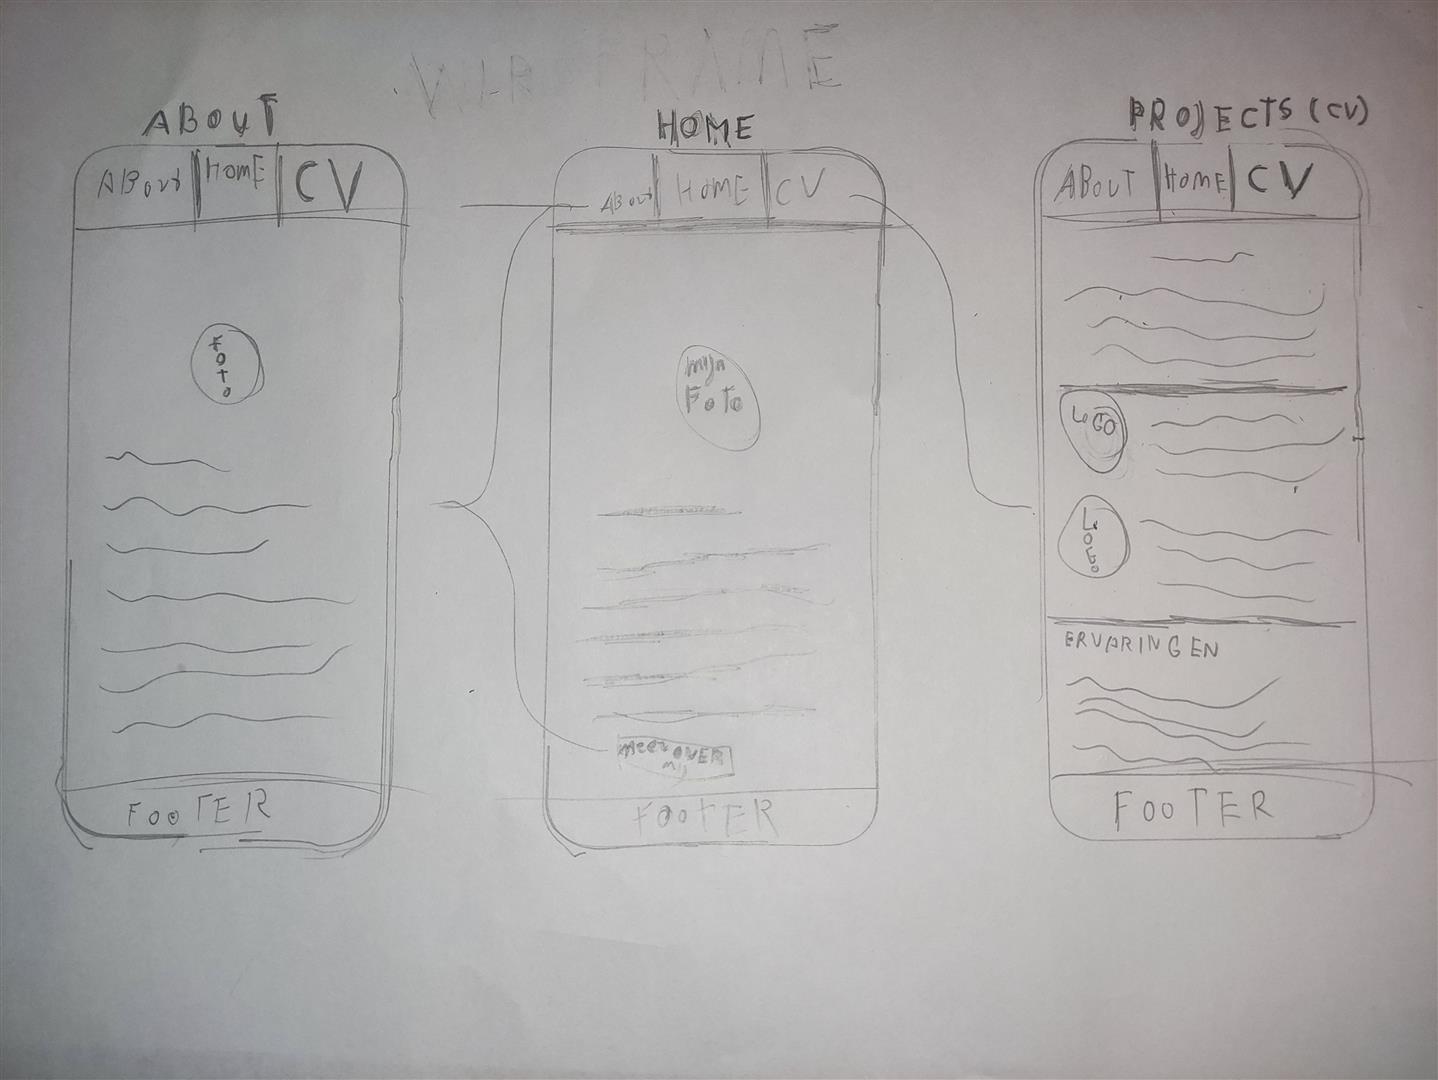 WIREFRAME
ABOUT
About
HOME
CV
FOTO
FOOTER
HOME
About
HOME
CV
mijn
FOTO
meer OVER
mij
FOOTER
PROJECTS (CV)
ABOUT
HOME
CV
LOGO
LOGO
ERVARINGEN
FOOTER